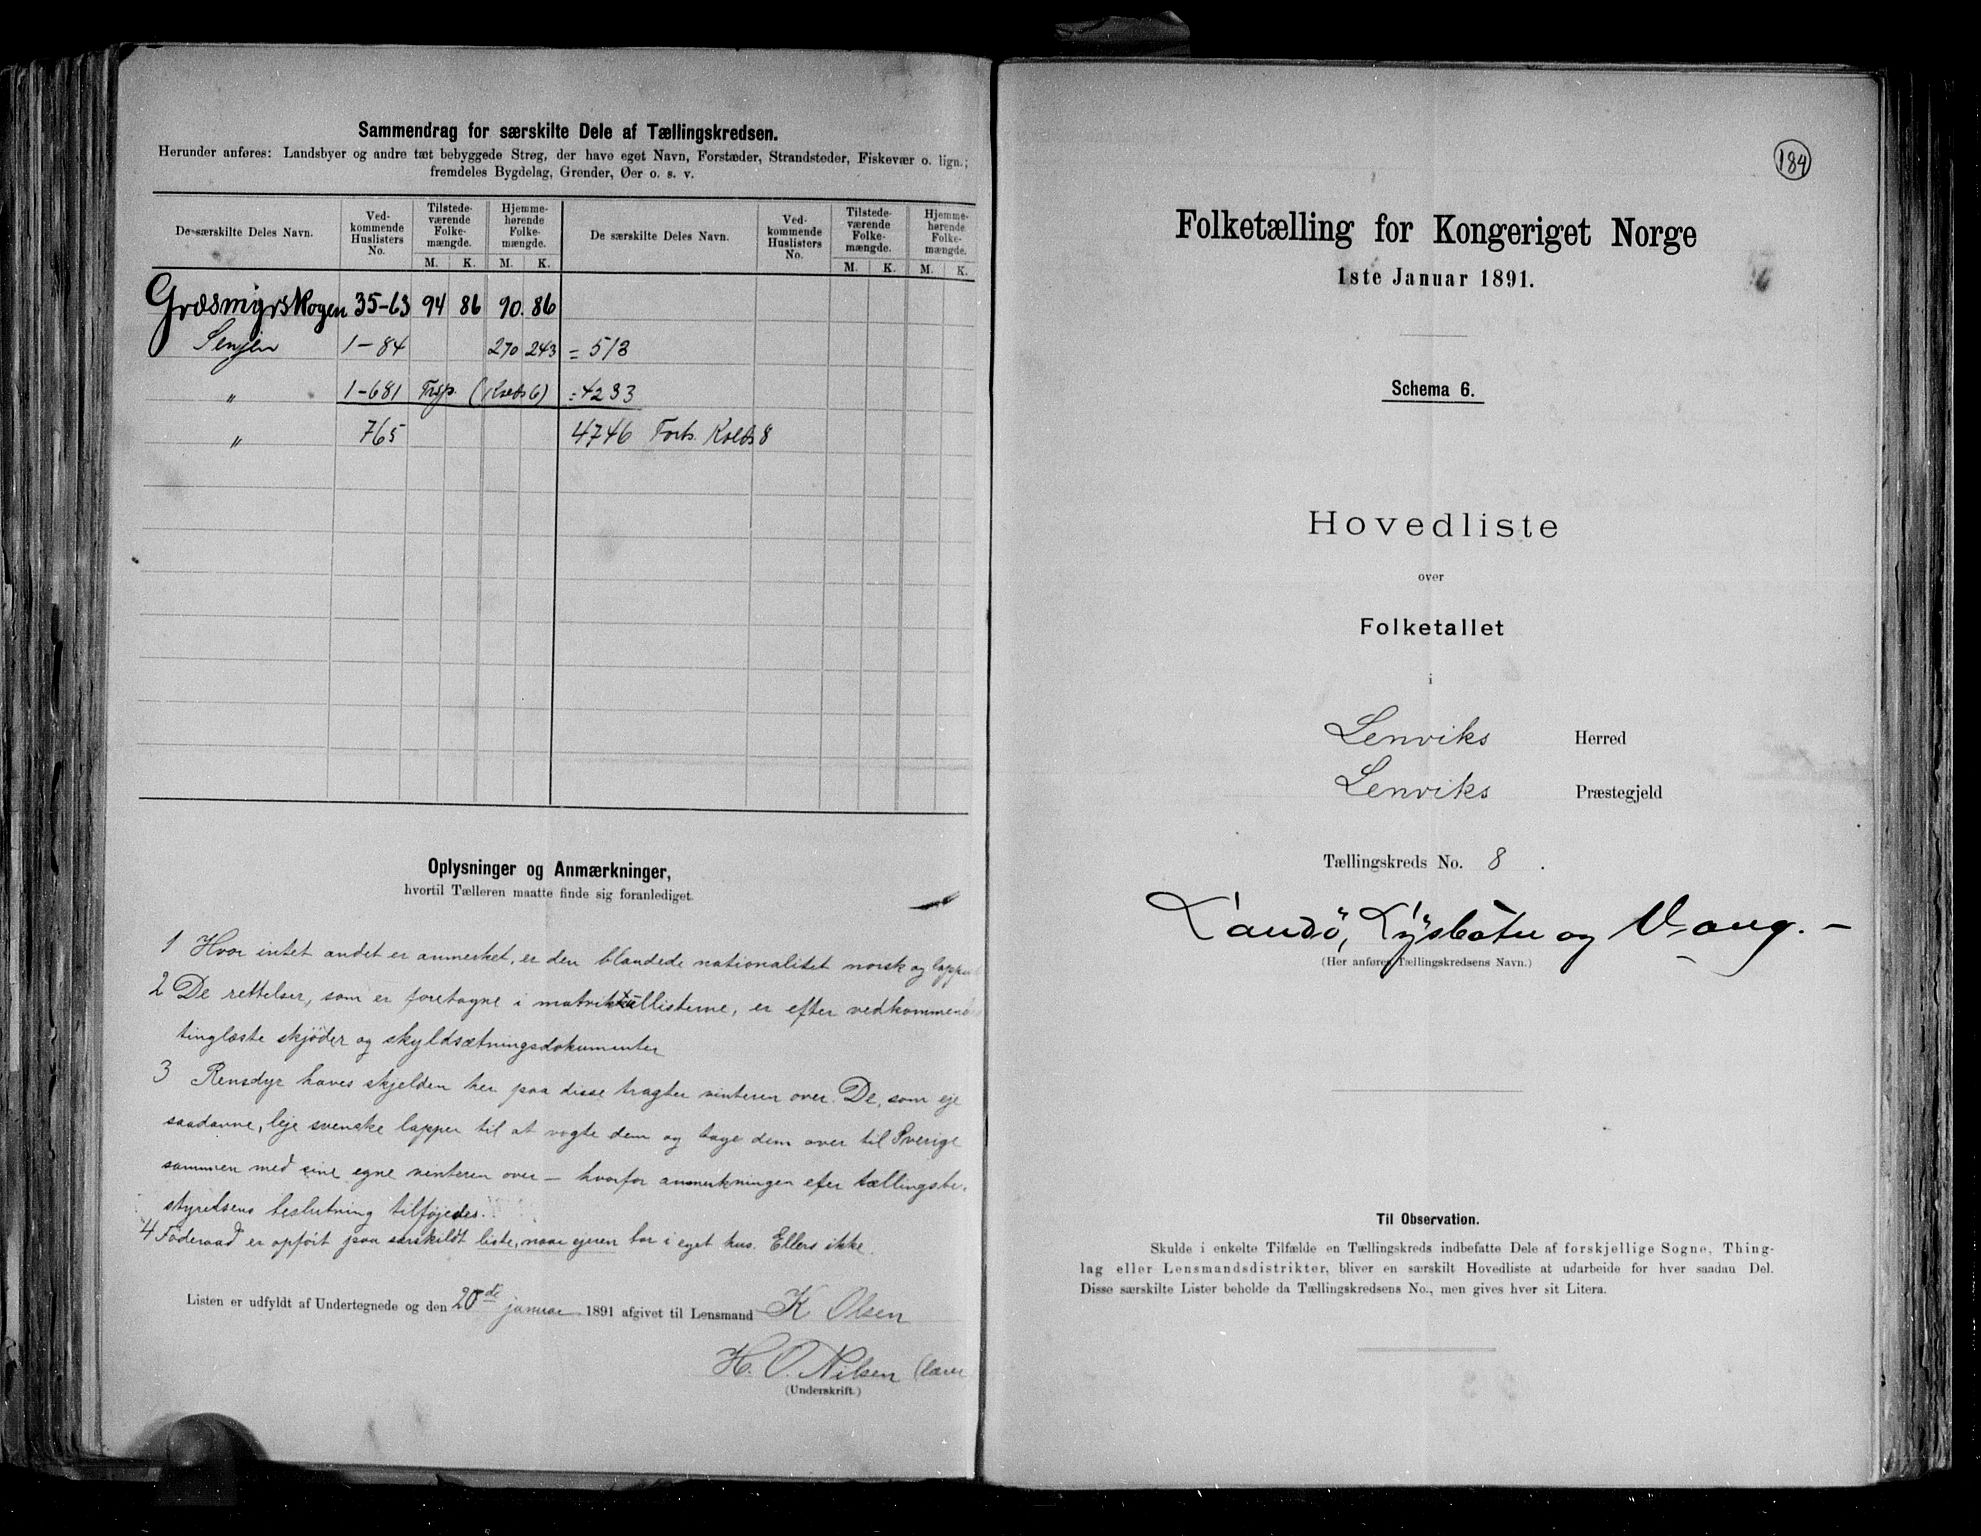 Sammendrag for særskilte Dele af Tællingskredsen.
Herunder anføres: Landsbyer og andre tæt bebyggede Strøg, der have eget Navn, Forstæder, Strandsteder, Fiskevær o. lign.;
fremdeles Bygdelag, Grender, Øer o. s. v.
De særskilte Deles Navn. Ved-kommende Huslisters No. Tilstede-værende Folke-mængde. Hjemme-hørende Folke-mængde. De særskilte Deles Navn. Ved-kommende Huslisters No. Tilstede-værende Folke-mængde. Hjemme-hørende Folke-mængde.
M. K. M. K. M. K. M. K.
Græsmyrskogen 35-63 94 86 90. 86
Senjen 1-84 270 243 = 513
" 1-681 Trsp. (Kreds 6) = 4233
" 765 4746 Forts. Kreds 8
Oplysninger og Anmærkninger,
hvortil Tælleren maatte finde sig foranlediget.
1 Hvor intet andet er anmerket, er den blandede nationalitet norsk og
2 De rettelser, som er foretagne i matrikkullisterne, er efter
tinglæste skjøder og skyldsætningsdokumenter
3 Rensdyr haves skjelden her paa disse tragter vinteren over. De, som eje
saadanne, leje svenske lapper til at vogte dem og tage dem over til Sverige
sammen med sine egne vinteren over – hvorfor anmerkningen efter tællingsbe-
styrelsens beslutning tilføjedes.
4 Føderaad er opført paa særskildt liste, naar ejeren bor i eget hus. Ellers ikke.
Listen er udfyldt af Undertegnede og den 20de januar 1891 afgivet til Lensmand K Olsen
H. O. Nilsen
(Underskrift.)
184
Folketælling for Kongeriget Norge
1ste Januar 1891.
Schema 6.
Hovedliste
over
Folketallet
i
Lenviks Herred
Lenviks Præstegjeld
Tællingskreds No. 8.
Landö, Lysbotn og Vang. –
(Her anføres Tællingskredsens Navn.)
Til Observation.
Skulde i enkelte Tilfælde en Tællingskreds indbefatte Dele af forskjellige Sogne, Thing-
lag eller Lensmandsdistrikter, bliver en særskilt Hovedliste at udarbeide for hver saadan Del.
Disse særskilte Lister beholde da Tællingskredsens No., men gives hver sit Litera.